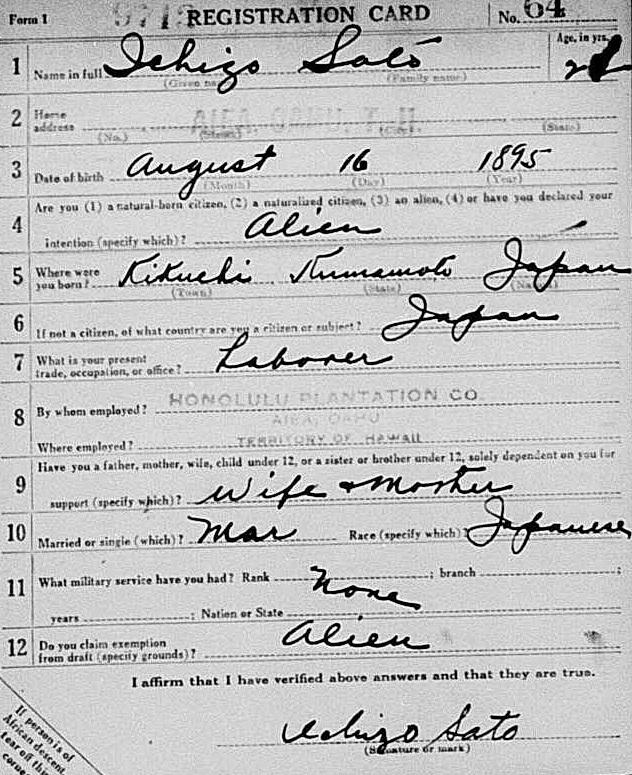 Form 1 REGISTRATION CARD No. 64
1 Name in full Ichizo Sato Age, in yrs.
(Given name) (Family name)
2 Home address AIEA, OAHU, T. H.
(No.) (Street) (City) (State)
3 Date of birth August 16 1895
(Month) (Day) (Year)
4 Are you (1) a natural-born citizen, (2) a naturalized citizen, (3) an alien, (4) or have you declared your
intention (specify which)? Alien
5 Where were you born? Kikuchi Kumamoto Japan
(Town) (State) (Nation)
6 If not a citizen, of what country are you a citizen or subject? Japan
7 What is your present trade, occupation, or office? Laborer
8 By whom employed? HONOLULU PLANTATION CO.
AIEA, OAHU
Where employed? TERRITORY OF HAWAII
9 Have you a father, mother, wife, child under 12, or a sister or brother under 12, solely dependent on you for
support (specify which)? Wife & Mother
10 Married or single (which)? Mar Race (specify which)? Japanese
11 What military service have you had? Rank None ; branch ;
years ; Nation or State
12 Do you claim exemption from draft (specify grounds)? Alien
I affirm that I have verified above answers and that they are true.
Ichizo Sato
(Signature or mark)
If person is of
African descent,
tear off this
corner